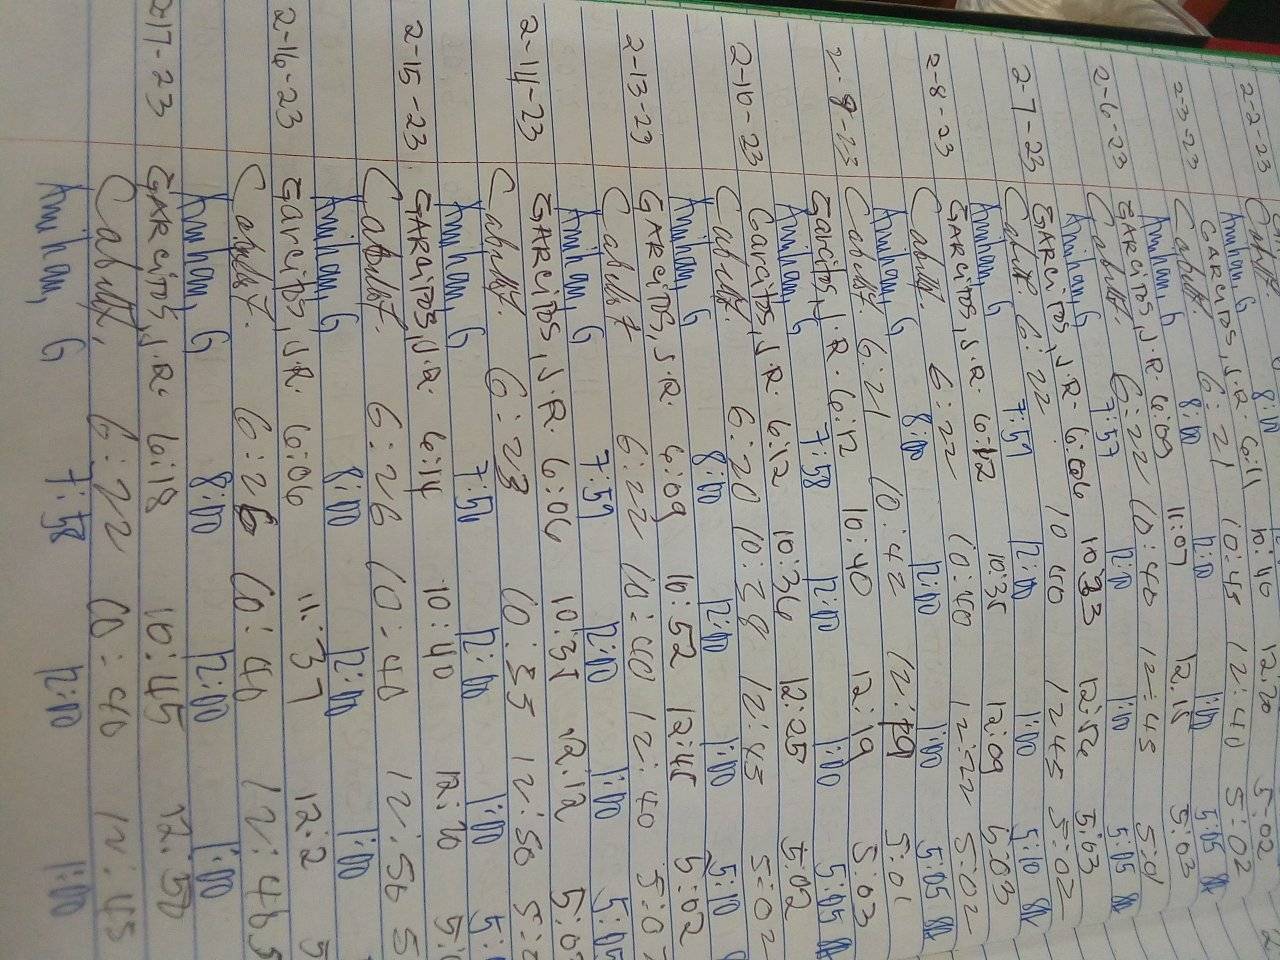 2-2-23 Cabult.
Amihan, G 8:00
GARCITOS, J.R 6:11 10:40 12:20 5:02
2-3-23 Cabult. 6:21 10:45 12:40 5:02
Amihan, G 8:00 12:00 1:00 5:05
2-6-23 GARCITOS, J.R. 6:09 11:07 12:15 5:03
Cabult. 6:22 10:40 12:45 5:01
Amihan, G 7:57 12:00 1:00 5:05
2-7-23 GARCITOS, J.R. 6:06 10:33 12:52 5:03
Cabult. 6:22 10 40 12 45 5:02
Amihan, G 7:59 12:00 1:00 5:10
2-8-23 GARCITOS, J.R. 6:12 10:35 12:09 5:03
Cabult. 6:22 10:40 12:22 5:02
Amihan, G 8:00 12:00 1:00 5:05
2-9-23 Cabult. 6:21 10:42 12:19 5:01
Garcitos, J.R. 6:12 10:40 12:19 5:03
Amihan, G 7:58 12:00 1:00 5:05
2-10-23 Garcitos, J.R. 6:12 10:34 12:25 5:02
Cabult. 6:20 10:38 12:45 5:02
Amihan, G 8:00 12:00 1:00 5:10
2-13-23 GARCITOS, J.R. 6:09 10:52 12:45 5:02
Cabult 6:22 10:40 12:40 5:0
Amihan, G 7:59 12:00 1:00 5:05
2-14-23 GARCITOS, J.R. 6:06 10:31 12:12 5:0
Cabult. 6:23 10:33 12:50 5:
Amihan, G 7:59 12:00 1:00 5:
2-15-23 GARCITOS, J.R. 6:14 10:40 12:20 5:
Cabult. 6:26 10:40 12:56 5
Amihan, G 8:00 12:00 1:00
2-16-23 Garcitos, J.R. 6:06 11:37 12:2 5
Cabult. 6:26 10:40 12:48 5
Amihan, G 8:00 12:00 1:00
2-17-23 GARCITOS, J.R. 6:18 10:45 12:50
Cabult, 6:22 10:40 12:45
Amihan, G 7:58 12:00 1:00